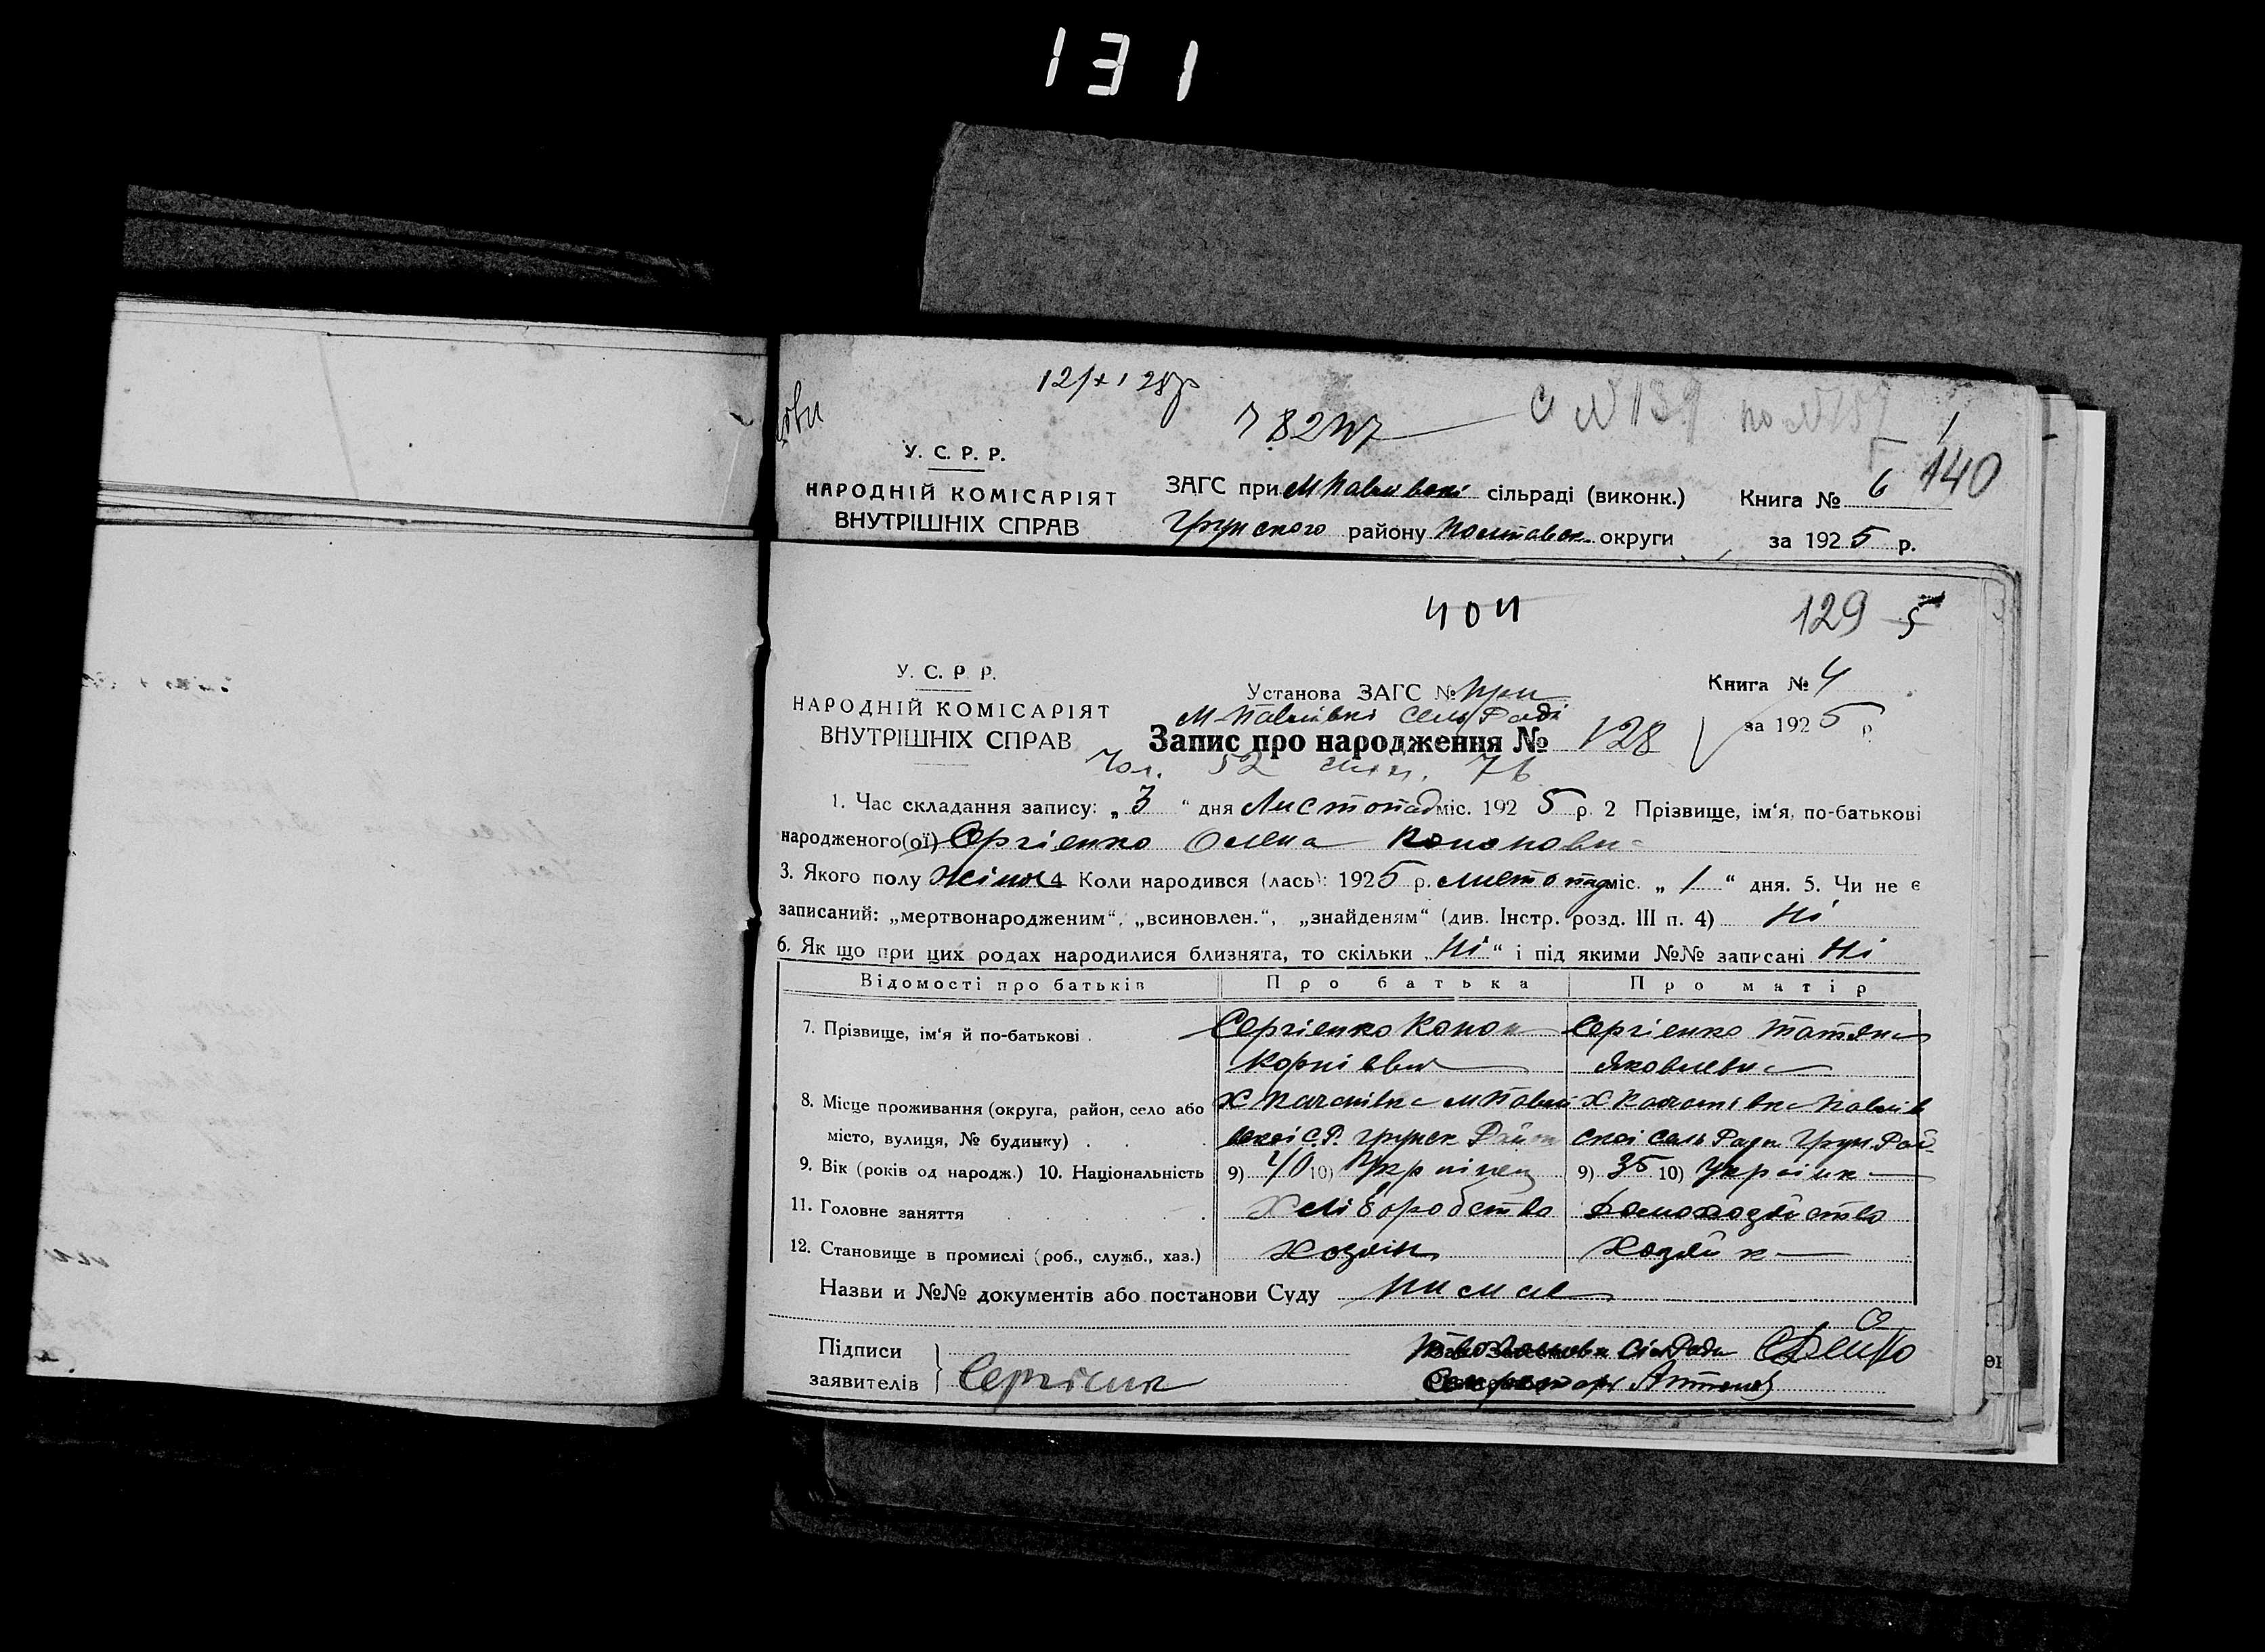 131
У. С. Р. Р.
НАРОДНІЙ КОМІСАРІЯТ
ВНУТРІШНІХ СПРАВ
ЗАГС при М Павлівскі сільраді (виконк.)
Грунского району Полтавск. округи
Книга № 6
140
за 1925 р.
404
129
У. С. Р. Р.
НАРОДНІЙ КОМІСАРІЯТ
ВНУТРІШНІХ СПРАВ
Установа ЗАГС № при
М-Павлівкі Сель Раді
Запис про народження № 128
Книга № 4
за 1925 р
Чол. 52 жін. 76
1. Час складання запису: „3“ дня Листопад міс. 1925 р. 2 Прізвище, ім‘я, по-батькові
народженого(ої) Сергіенко Олена Кононовн
3. Якого полу жіноч 4 Коли народився (лась): 1925 р. листопад міс. „1“ дня. 5. Чи не є
записаний: „мертвонародженим“, „всиновлен.“, „знайденям“ (див. Інстр. розд. III п. 4) Ні
6. Як що при цих родах народилися близнята, то скільки „Ні“ і під якими №№ записані Ні
Відомості про батьків Про батька Про матір
7. Прізвище, ім‘я й по-батькові. Сергіенко Конон Сергіенко Татяна
Корніевич Яковлевна
8. Місце проживання (округа, район, село або Х М Павлі Х Павлів
місто, вулиця, № будинку) . . вскоі С.Р. Грунск Район скоі Сель Ради Грун. Рай
9. Вік (років од народж.) 10. Національність 9) 40 10) Украінец 9) 35 10) Украінк
11. Головне заняття Хліборобство Домохозяйство
12. Становище в промислі (роб., служб., хаз.) Хозяін Хозяйк
Назви и №№ документів або постанови Суду
Підписи
заявителів } Сергіенк
СілРади
Секретарь